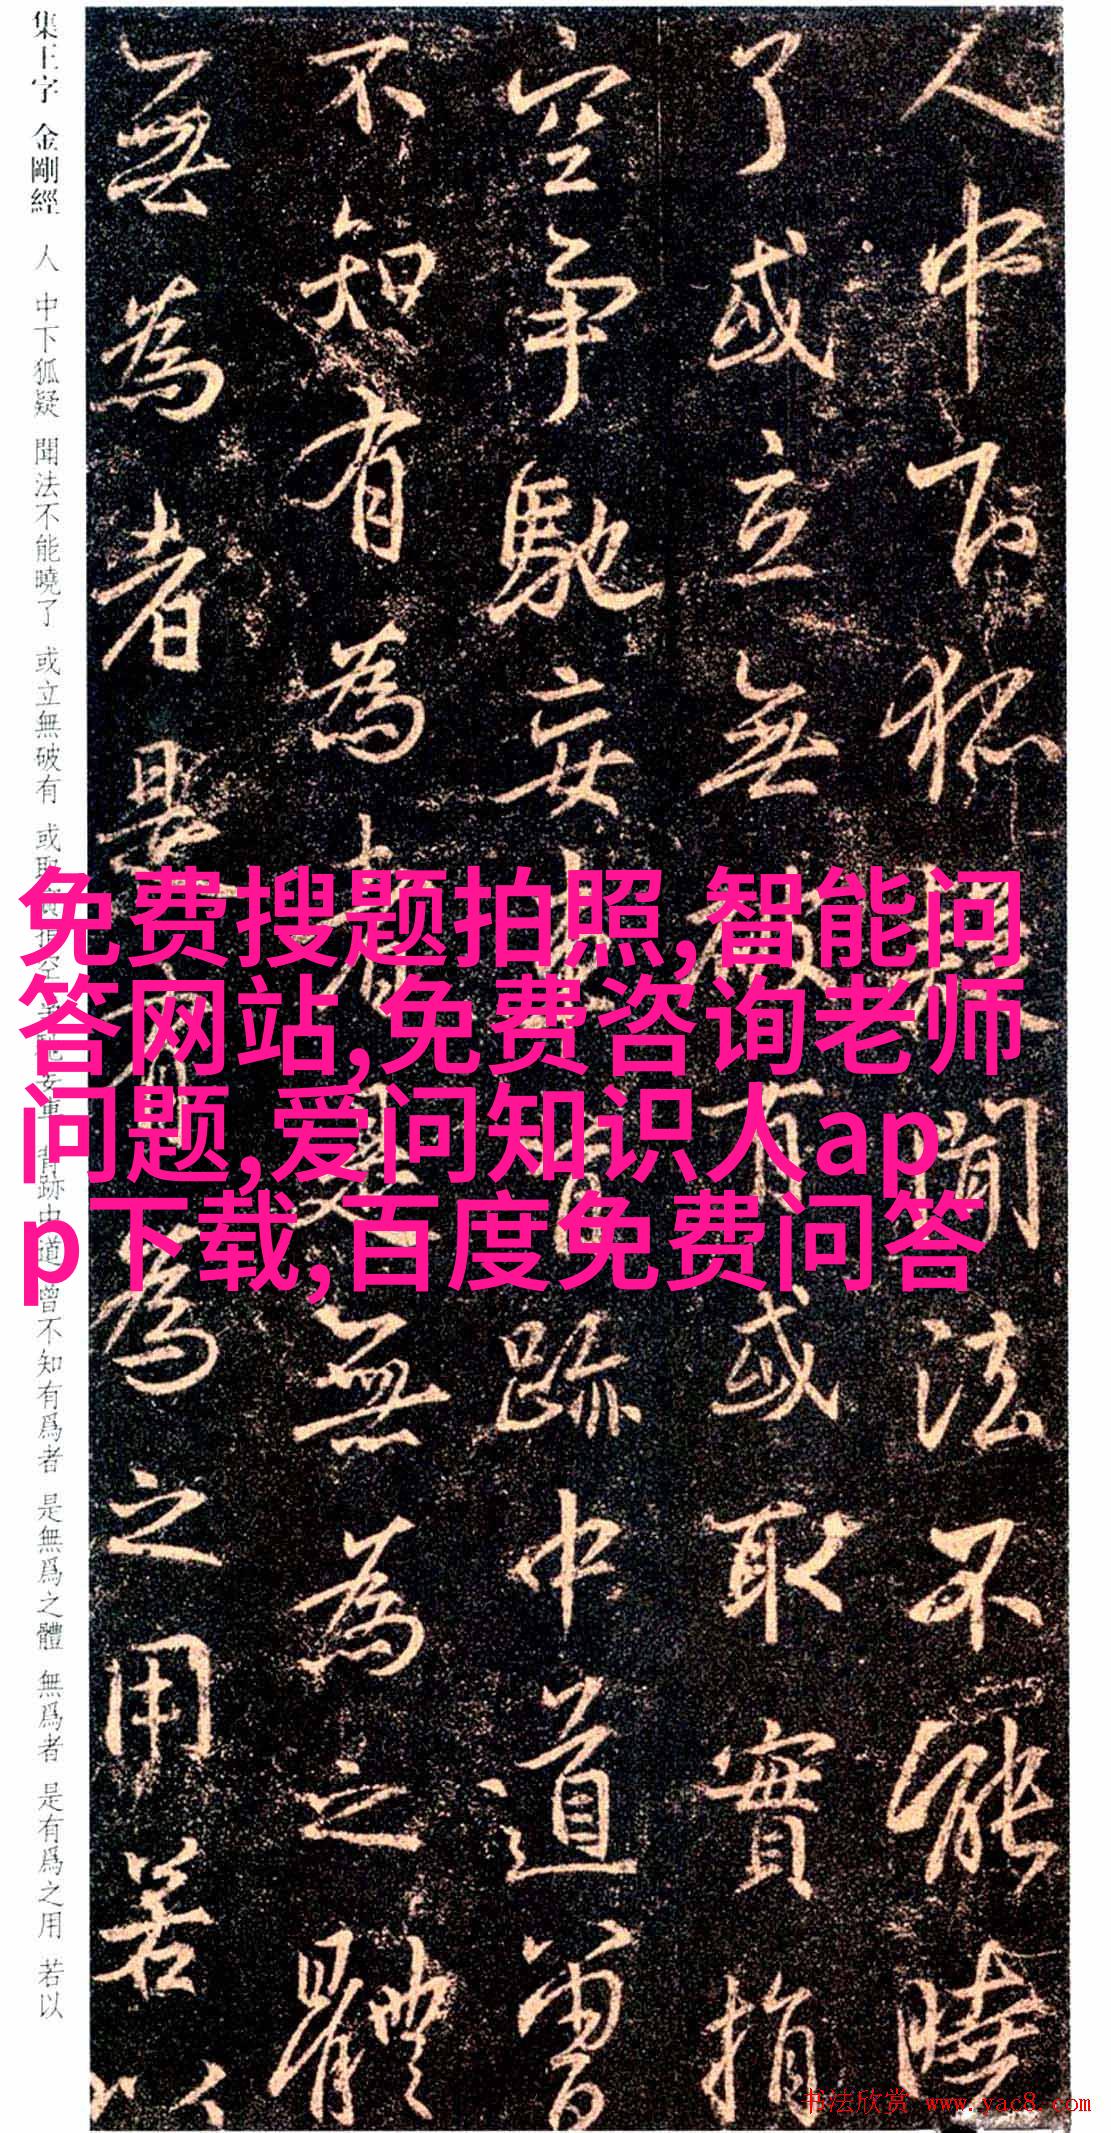 集王字 金剛經 人 中下狐疑 聞法不能曉了 或立無破有 或取
跡中道 曾不知有爲者 是無爲之體 無爲者 是有爲之用 若以
人中下狐疑聞法不能曉
了或立無破有或取實捐
空爭馳妄
跡中道曾
不知有為者是無為之體
無為者是有為之用若以
免费搜题拍照,智能问
答网站,免费咨询老师
问题,爱问知识人ap
p下载,百度免费问答
书法欣赏 www.yac8.com